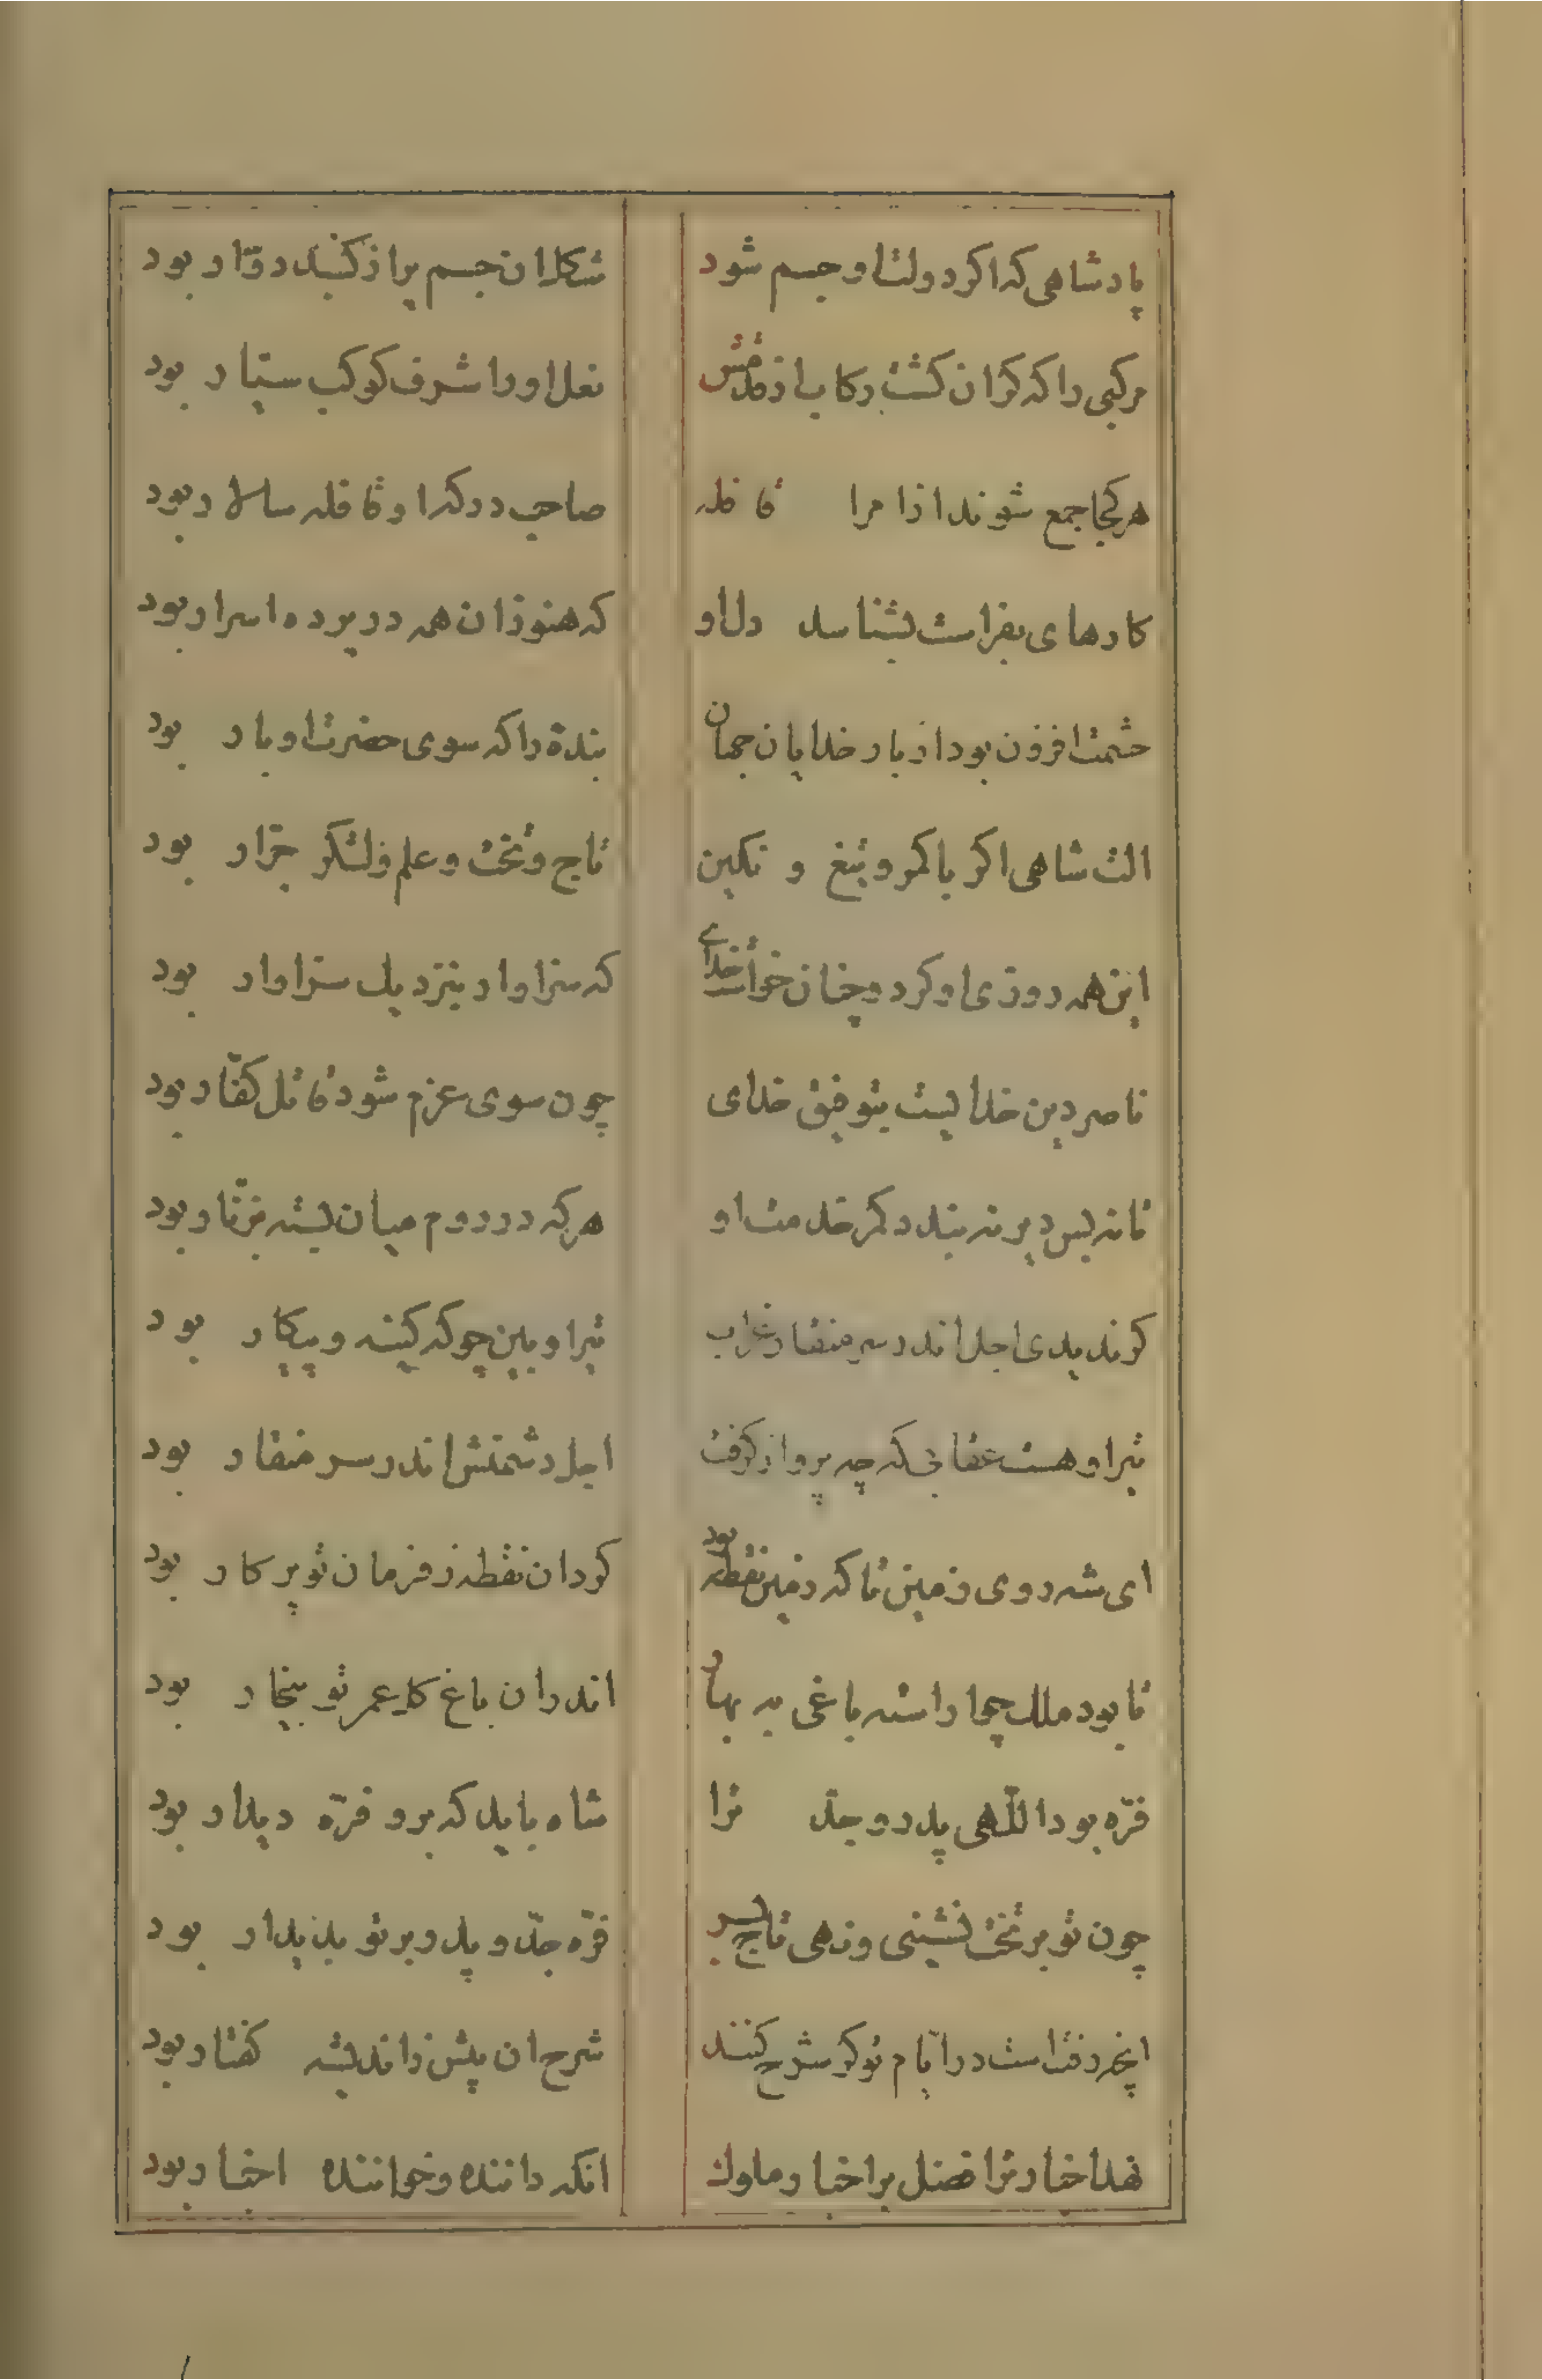 پادشاهی که اکر دولت او جسم شود شکل ان جسم پر از کنبد دوّار بود
مرکبی را که کران کشت رکاب از قدمش نعل او را شرف کوکب سیّار بود
هر کجا جمع شوند از امرا قافله صاحب درکه او قافله سالار بود
کارهای بفراست بشناسد دل او که هنوز ان همه در پرده اسرار بود
حشمت افزون بود از بار خدایان جهان بندهٔ را که سوی حضرت او بار بود
الت شاهی اکر با کمر و تیغ و نکین تاج و تخت و علم و لشکر جرّار بود
این همه روزی او کرد و چنان خواست خدای که سزاوار بنزدیک سزاوار بود
ناصر دین خدایست بتوفیق خدای چون سوی عزم شود قاتل کفّار بود
تا نه بس دیر نه بندد کمر خدمت او هرکه در روم میان بسته بزنّار بود
کر ندیدی اجل اندر سر منقار غراب تیر او بین چو که کینه و پیکار بود
تیر او هست عقابی که چه پرواز کرفت اجل دشمنش اندر سر منقار بود
ای شه روی زمین تا که زمین نقطه بود کرد ان نقطه ز فرمان تو پرکار بود
تا بود ملک چه اراسته باغی به بهار اندران باغ کل عمر تو بیخار بود
فرّه بود اللّهی پدر و جدّ ترا شاه باید که برو فرّه دیدار بود
چون تو بر تخت نشینی و نهی تاج بسر فرّه جدّ و پدر بر تو پدیدار بود
انچه رفت است در ایّام تو کر شرح کنند شرح ان پیش ز اندیشه کفتار بود
نهد اخبار ترا فضل بر اخبار ملوک انکه داننده و خواننده اخبار بود